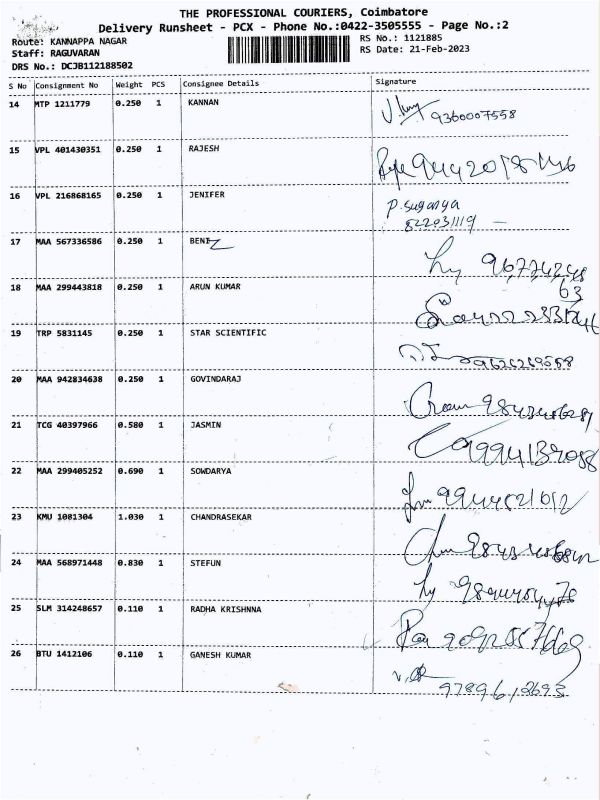 THE PROFESSIONAL COURIERS, Coimbatore
Delivery Runsheet - PCX - Phone No.:0422-3505555 - Page No.:2
Route: KANNAPPA NAGAR RS No.: 1121885
Staff: RAGUVARAN RS Date: 21-Feb-2023
DRS No.: DCJB112188502
S No Consignment No Weight PCS Consignee Details Signature
14 MTP 1211779 0.250 1 KANNAN 9360007558
15 VPL 401430351 0.250 1 RAJESH
16 VPL 216868165 0.250 1 JENIFER P. Suganya
822031119
17 MAA 567336586 0.250 1 BENI
18 MAA 299443818 0.250 1 ARUN KUMAR 63
19 TRP 5831145 0.250 1 STAR SCIENTIFIC
20 MAA 942834638 0.250 1 GOVINDARAJ
21 TCG 40397966 0.580 1 JASMIN
22 MAA 299405252 0.690 1 SOWDARYA
23 KMU 1081304 1.030 1 CHANDRASEKAR
24 MAA 568971448 0.830 1 STEFUN
25 SLM 314248657 0.110 1 RADHA KRISHNNA
26 BTU 1412106 0.110 1 GANESH KUMAR
9789612693